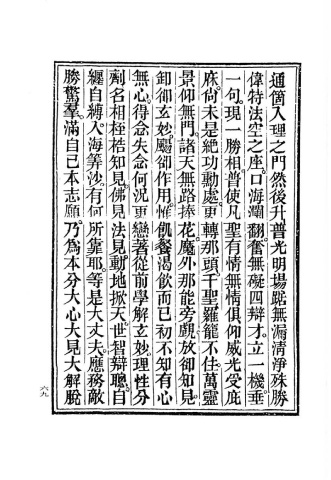 通箇入理之門然後升普光明場踞無漏清淨殊勝
偉特法空之座口海瀾翻奮無礙四辯才立一機垂
一句現一勝相普使凡聖有情無情俱仰威光受庇
庥尚未是絶功勳處更轉那頭千聖羅籠不住萬靈
景仰無門諸天無路捧花魔外那能旁覷放卻知見
卸卻玄妙屏卻作用惟飢餐渴飲而已初不知有心
無心得念失念何況更戀著從前學解玄妙理性分
劑名相桎梏知見佛見法見動地掀天世智辯聰自
纏自縛入海筭沙有何所靠耶等是大丈夫應務敵
勝驚羣滿自己本志願乃爲本分大心大見大解脫
六九